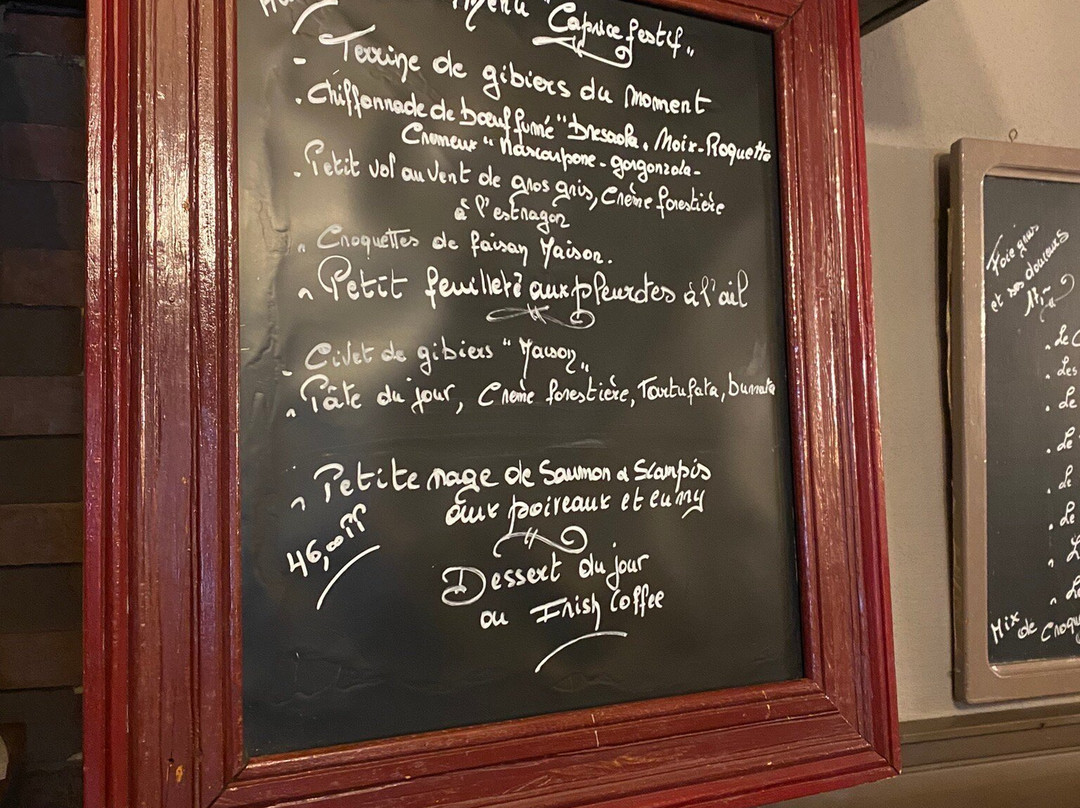 Menu "Caprice festif"
- Terrine de gibiers du moment
- Chiffonnade de bœuf fumé "bresaola, Noix-Roquette
Crémeux "Mascarpone-gorgonzola-
- Petit vol au vent de gros gris, Crème forestière
à l'estragon
- Croquettes de faisan Maison.
- Petit feuilleté aux pleurotes à l'ail
- Civet de gibiers "Maison"
- Pâte du jour, Crème forestière, Tartufata, burrata
- Petite nage de Saumon & Scampis
aux poireaux et curry
46,00 PP
Dessert du jour
ou Irish Coffee
Foie gras
et ses douceurs
. Le
. Les
. Le
. Le
. Le
. Le
Mix de Croqu